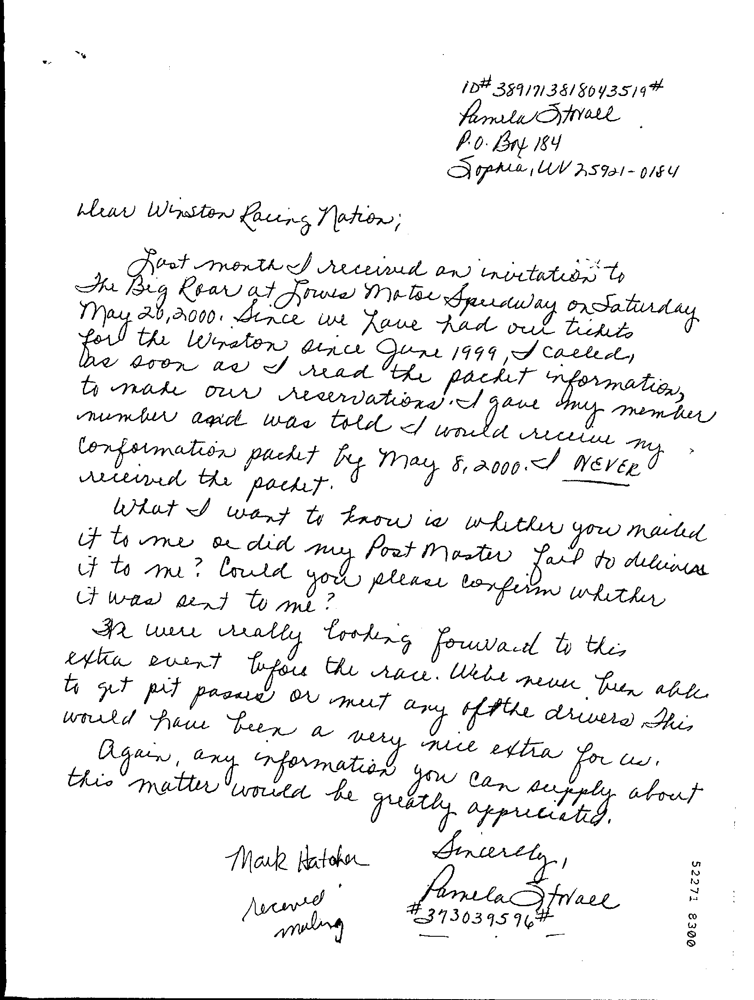 ID# 3891713818043519#
Pamela Stovall
P.O. Box 184
Sophia, WV 25921-0184
Dear Winston Racing Nation;
Last month I received an invitation to
The Big Roar at Lowes Motor Speedway on Saturday
May 20, 2000. Since we have had our tickets
for the Winston since June 1999, I called,
as soon as I read the packet information,
to make our reservations. I gave my member
number and was told I would receive my
conformation packet by May 8, 2000. I NEVER
received the packet.
What I want to know is whether you mailed
it to me or did my Post Master fail to deliver
it to me? Could you please confirm whether
it was sent to me?
We were really looking forward to this
extra event before the race. We've never been able
to get pit passes or meet any of the drivers. This
would have been a very nice extra for us.
Again, any information you can supply about
this matter would be greatly appreciated.
Sincerely,
Pamela Stovall
#373039596#
Mark Hatcher
received
mailing
52271 8300